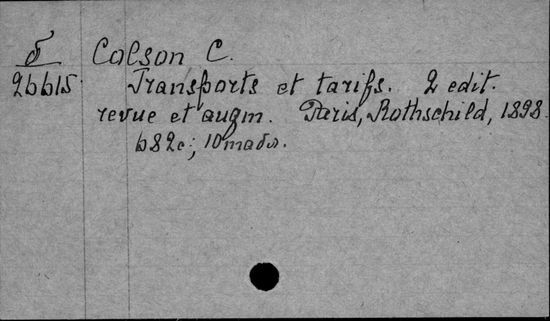 5 Colson C.
26615 Transports et tarifs. 2 edit.
revue et augm. Paris, Rothschild, 1898.
682c;